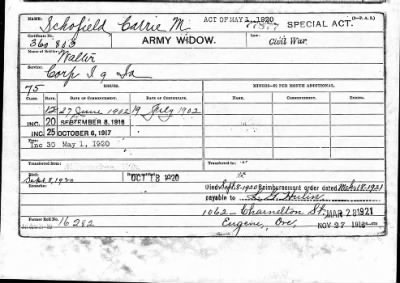 NAME: Schofield Carrie M. ACT OF MAY 1, 1920 (3—P. A. S.)
SPECIAL ACT.
Certificate No. 360 803 ARMY WIDOW. Civil War.
Name of Soldier: Walter
Service: Corp I 9 Ia
75 ISSUES. MINORS—$2 PER MONTH ADDITIONAL.
CLASS. RATE. DATE OF COMMENCEMENT. DATE OF CERTIFICATE.
12 27 June 1902 19 July 1902
INC. 20 SEPTEMBER 8, 1916
INC. 25 OCTOBER 6, 1917
Inc 30 May 1, 1920
Transferred from
Died Sept 8, 1920 OCT 18 1920
Remarks: Died Sept. 8, 1920 Reimbursement order dated Mch 18, 1921
payable to
1062 — Charnelton St. MAR 28 1921
Former Roll No. 16282 Eugene, Ore, NOV 27